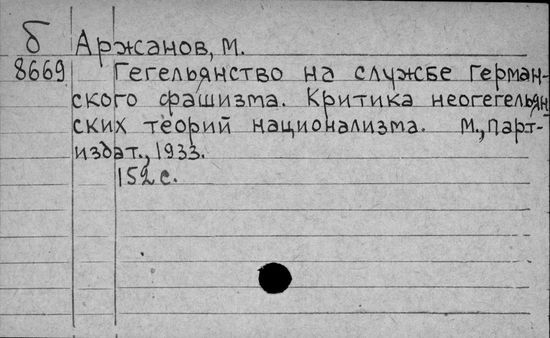 б Аржанов, М.
8669 Гегельянство на службе герман-
ского фашизма. Критика неогегельян
ских теорий национализма. М., Парт-
издат., 1933.
152 с.